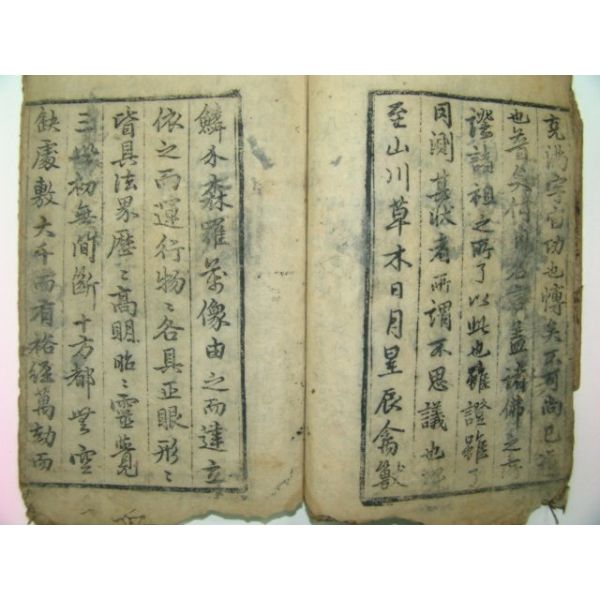 充滿宇宙功也博矣不可尚已
也昔矣付 名言蓋諸佛之
證諸祖之所了以此也雖證雖
罔測其狀者所謂不思議也
至山川草木日月星辰禽獸
鱗介森羅萬像由之而建立
依之而運行物〻各具正眼形〻
皆具法界歷〻高明昭〻靈覺
三世初無間斷十方都無空
缺處敷大千而有裕經萬劫而